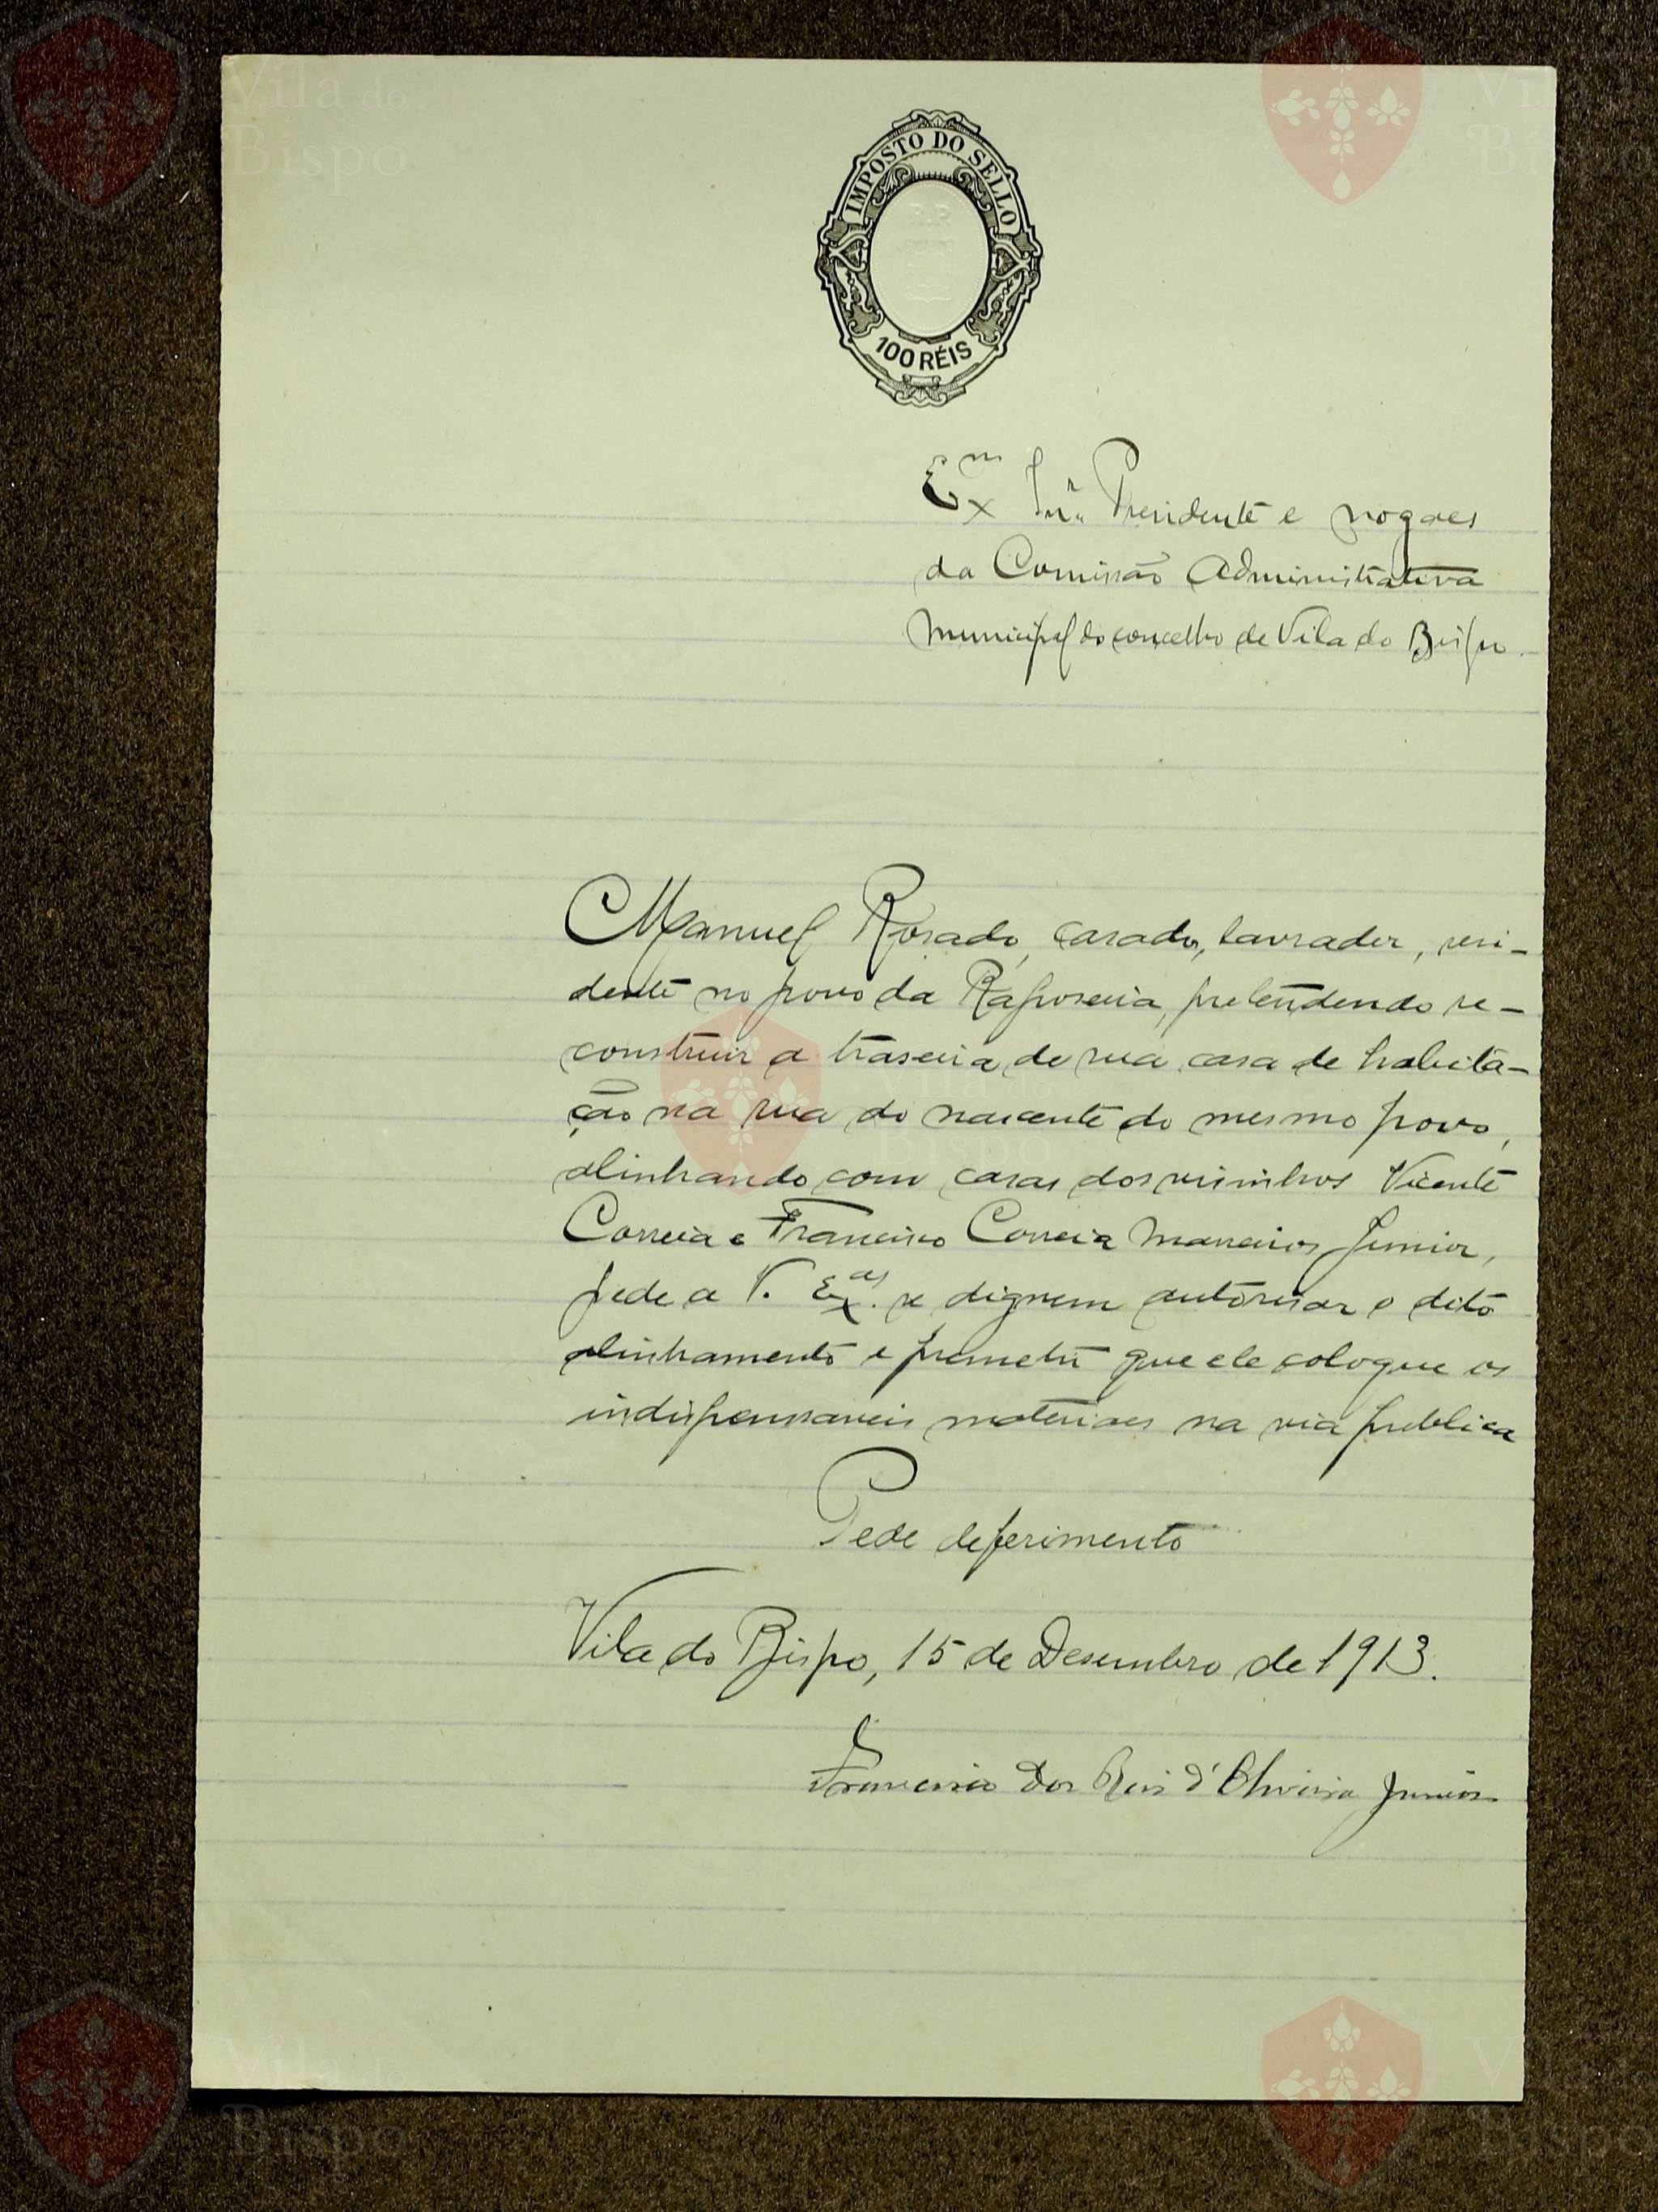 Vila do
Bispo
IMPOSTO DO SELLO
R.P.
100 RÉIS
Exm Snr. Presidente e vogaes
da Comissão Administrativa
Municipal do concelho de Vila do Bispo.
Manuel Rosado, casado, lavrador, resi-
dente no povo da Raposeira, pretendendo re-
construir a traseira de sua casa de habita-
ção na rua do nascente do mesmo povo,
alinhando com casas dos visinhos Vicente
Correia e Francisco Correia Marreiros Junior,
pede a V. Exas. se dignem autorisar o dito
alinhamento e permetir que ele coloque os
indispensaveis materiaes na via publica
Pede deferimento
Vila do Bispo, 15 de Desembro de 1913.
Francisco dos Reis d'Oliveira Junior